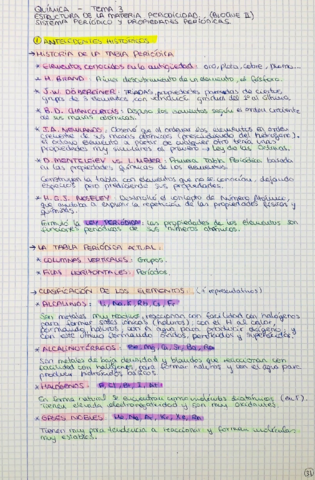 QUÍMICA - TEMA 3
ESTRUCTURA DE LA MATERIA. PERIODICIDAD. (BLOQUE II)
SISTEMA PERIÓDICO Y PROPIEDADES PERIÓDICAS.
① ANTECEDENTES HISTÓRICOS
→ HISTORIA DE LA TABLA PERIÓDICA
* Elementos conocidos en la antigüedad: oro, plata, cobre, plomo...
* H. BRAND: Primer descubrimiento de un elemento, el fósforo.
* J.W. DÖBEREINER: TRIADAS, propiedades
grupo de 3 elementos con
* B. D. CHANCOURTOIS: los elementos según el orden creciente
de sus masas atómicas.
* J.A. NEWLANDS: Observó que al colocar los elementos en orden
creciente de sus masas atómicas (prescindiendo del hidrógeno),
el octavo elemento a partir de cualquier otro tenía unas
propiedades muy similares al primero → Ley de las Octavas.
* D. MENDELEIEV y L. MEYER: Primera Tabla Periódica basada
en las propiedades químicas de los elementos.
Construyeron la tabla con elementos que no se conocían, dejando
espacios pero prediciendo sus propiedades.
* H.G.J. MOSELEY: el concepto de Número Atómico
que ayudaba a explicar la repetición de las propiedades físicas y
químicas.
Formuló la LEY PERIÓDICA: las propiedades de los elementos son
funciones periódicas de sus números atómicos.
→ LA TABLA PERIÓDICA ACTUAL:
* COLUMNAS VERTICALES: Grupos.
* FILAS HORIZONTALES: Períodos.
→ CLASIFICACIÓN DE LOS ELEMENTOS: (representativos)
* ALCALINOS: Li, Na, K, Rb, Cs, Fr
Son metales muy reactivos, reaccionan con facilidad con halógenos
para formar sales iónicas (haluros), con el H al calor,
formando hidruros, con el agua para producir oxígeno, y
con este último formando óxidos, peróxidos y superóxidos.
* ALCALINOTÉRREOS: Be, Mg, Ca, Sr, Ba, Ra
Son metales de baja densidad y blandos que reaccionan con
facilidad con halógenos para formar haluros y con el agua para
producir hidróxidos básicos.
* HALÓGENOS: F, Cl, Br, I, At
En forma natural se encuentran como moléculas diatómicas
Tienen elevada electronegatividad y son muy oxidantes.
* GASES NOBLES: He, Ne, Ar, Kr, Xe, Rn
Tienen muy poca tendencia a reaccionar y forman moléculas
muy estables.